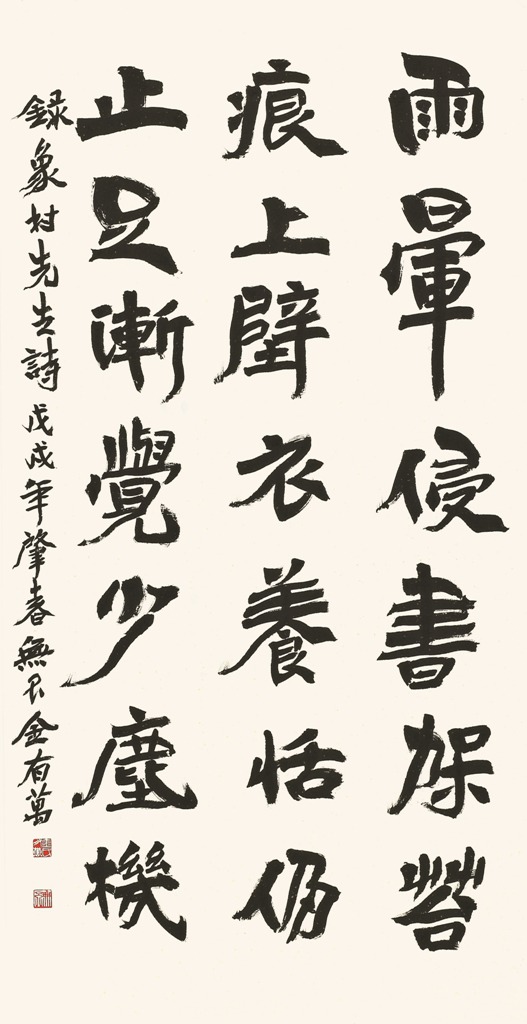 雨暈侵書架苔
痕上壁衣養恬仍
止足漸覺少塵機
錄象村先生詩戊戌年肇春無金有萬